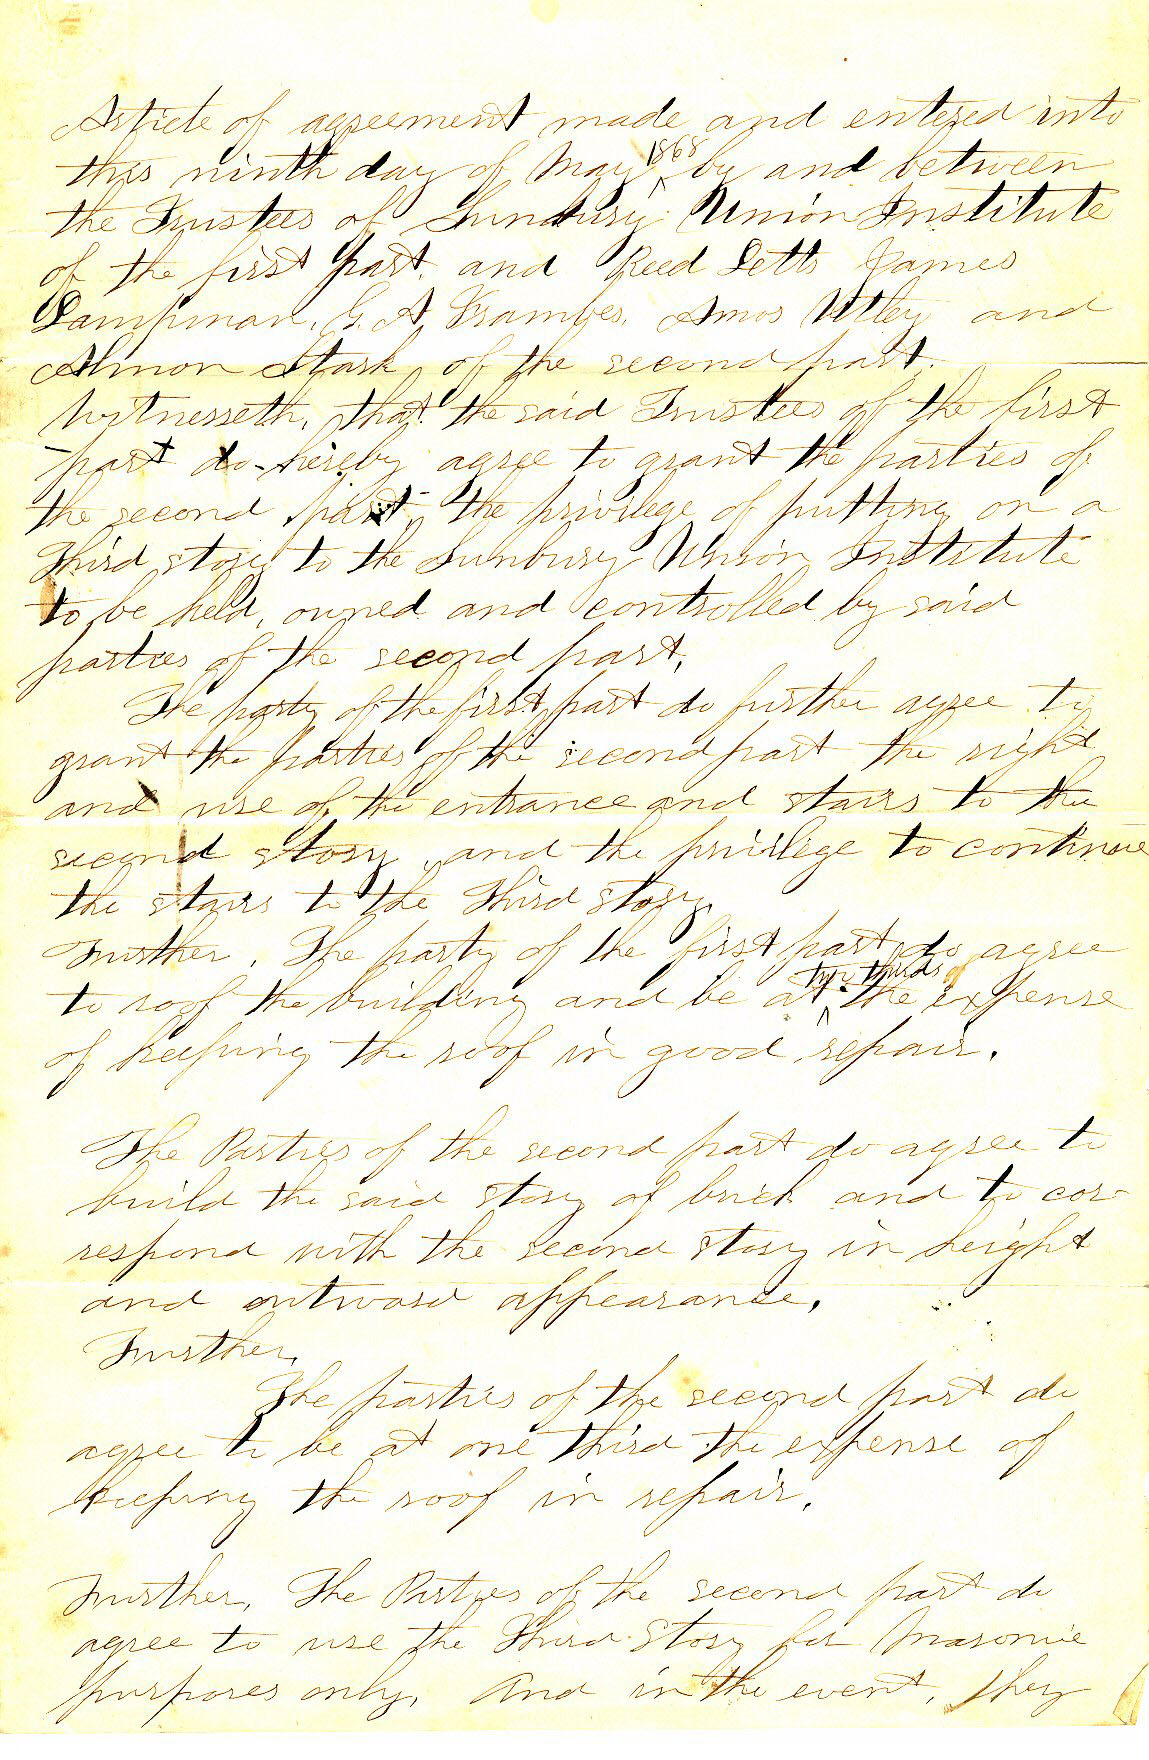 Article of agreement made and entered into
this ninth day of May ^1868 by and between
the Trustees of Sunbury Union Institute
of the first part. and Reed Letts James
Lampman, G. A. Frambes. Amos Utley and
Almon Stark, of the second part.
Witnesseth, that the said Trustees of the first
part do hereby agree to grant the parties of
the second part, the privilege of putting on a
Third story to the Sunbury Union Institute
to be held, owned and controlled by said
parties of the second part.
The party of the first part do further agree to
grant the parties of the second part the right
and use of the entrance and stairs to the
second story, and the privilege to continue
the stairs to the Third story.
Further. The party of the first part do agree
to roof the building and be at ^two thirds of the expense
of keeping the roof in good repair.
The Parties of the second part do agree to
build the said story of brick and to cor-
respond with the second story in height
and outward appearance.
Further,
The parties of the second part do
agree to be at one third the expense of
keeping the roof in repair.
Further, The Parties of the second part do
agree to use the Third Story for Masonic
purposes only. And in the event, they